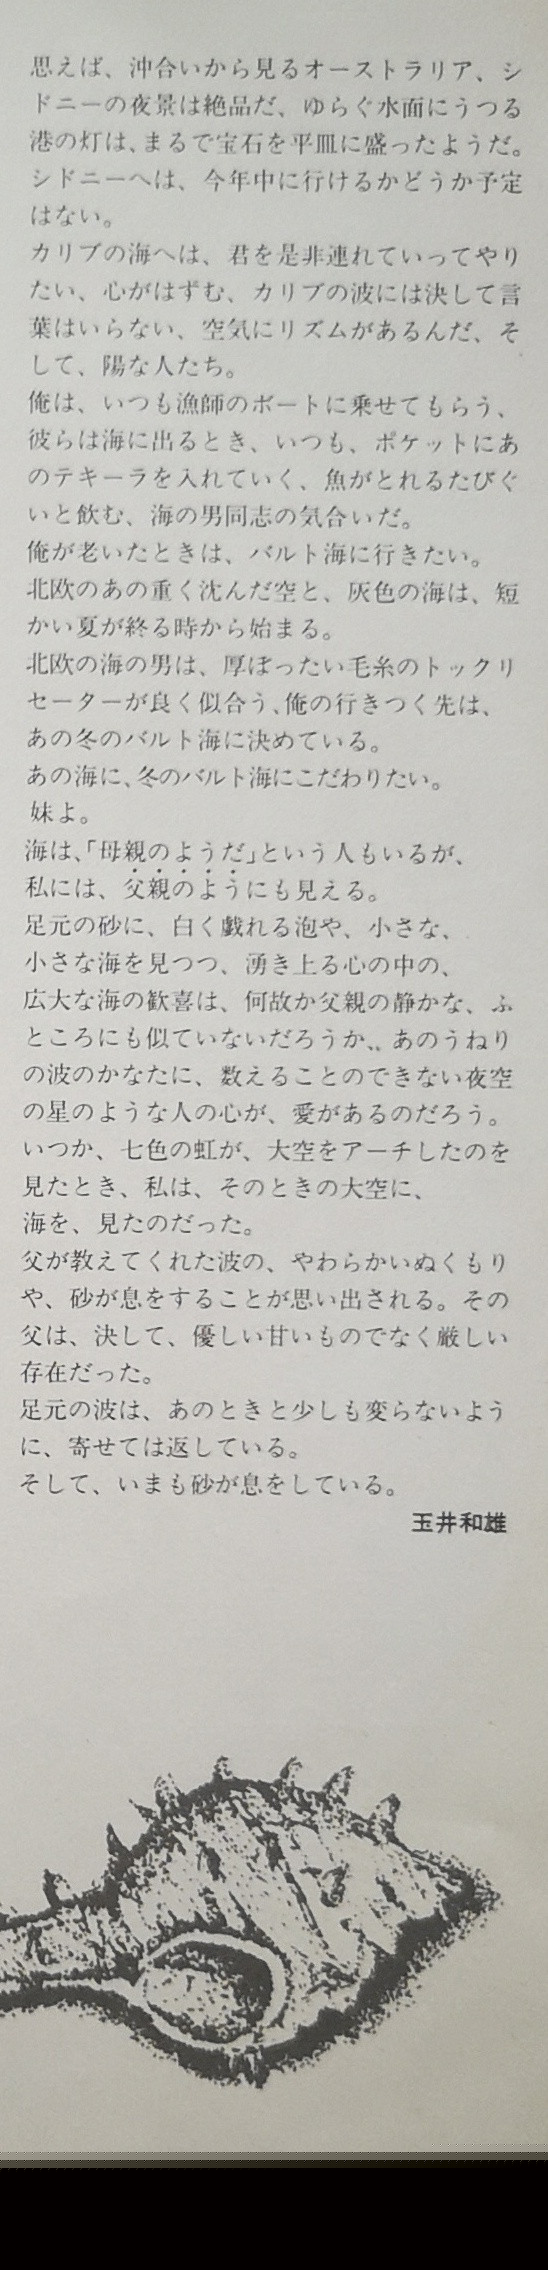 思えば、沖合いから見るオーストラリア、シ
ドニーの夜景は絶品だ、ゆらぐ水面にうつる
港の灯は、まるで宝石を平皿に盛ったようだ。
シドニーへは、今年中に行けるかどうか予定
はない。
カリブの海へは、君を是非連れていってやり
たい、心がはずむ、カリブの波には決して言
葉はいらない、空気にリズムがあるんだ、そ
して、陽な人たち。
俺は、いつも漁師のボートに乗せてもらう、
彼らは海に出るとき、いつも、ポケットにあ
のテキーラを入れていく、魚がとれるたびぐ
いと飲む、海の男同志の気合いだ。
俺が老いたときは、バルト海に行きたい。
北欧のあの重く沈んだ空と、灰色の海は、短
かい夏が終る時から始まる。
北欧の海の男は、厚ぼったい毛糸のトックリ
セーターが良く似合う、俺の行きつく先は、
あの冬のバルト海に決めている。
あの海に、冬のバルト海にこだわりたい。
妹よ。
海は、「母親のようだ」という人もいるが、
私には、父親のようにも見える。
足元の砂に、白く戯れる泡や、小さな、
小さな海を見つつ、湧き上る心の中の、
広大な海の歓喜は、何故か父親の静かな、ふ
ところにも似ていないだろうか、、あのうねり
の波のかなたに、数えることのできない夜空
の星のような人の心が、愛があるのだろう。
いつか、七色の虹が、大空をアーチしたのを
見たとき、私は、そのときの大空に、
海を、見たのだった。
父が教えてくれた波の、やわらかいぬくもり
や、砂が息をすることが思い出される。その
父は、決して、優しい甘いものでなく厳しい
存在だった。
足元の波は、あのときと少しも変らないよう
に、寄せては返している。
そして、いまも砂が息をしている。
玉井和雄